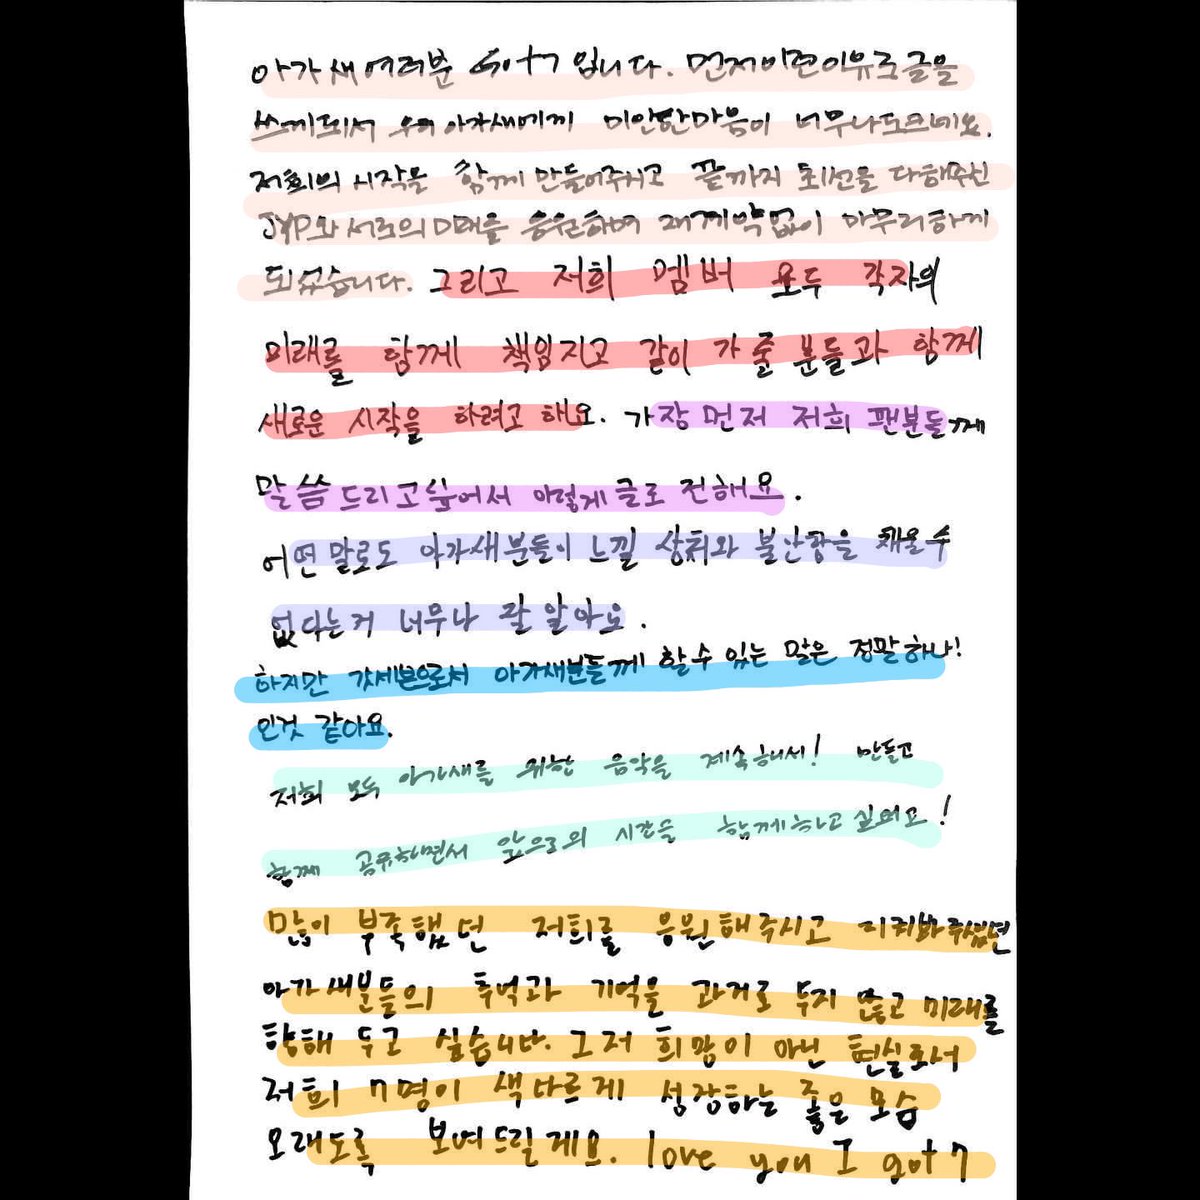 아가새여러분 Got7 입니다. 먼저이런이유로글을
쓰게되서 우리아가새에게 미안한마음이 너무나도크네요.
저희의 시작을 함께 만들어주시고 끝까지 최선을 다해주신
JYP와 서로의 미래을 응원하며 재계약없이 마무리하게
되섰습니다. 그리고 저희 멤버 모두 각자의
미래를 함께 책임지고 같이 가 줄 분들과 함께
새로운 시작을 하려고 해요. 가장 먼저 저희 팬분들께
말씀드리고싶어서 이렇게 글로 전해요.
어떤말로도 아가새분들이 느낄 상처와 불안함을 채울수
없다는거 너무나 잘 알아요.
하지만 갓세븐으로서 아가새분들께 할수 있는 말은 정말하나!
인것 같아요.
저희 모두 아가새를 위한 음악을 계속해서! 만들고
함께 공유하면서 앞으로의 시간을 함께하고싶어요!
많이 부족했던 저희를 응원해주시고 지켜봐주셨던
아가새분들의 추억과 기억을 과거로 두지 않고 미래를
향해 두고 싶습니다. 그저 희망이 아닌 현실로서
저희 7명이 색다르게 성장하는 좋은 모습
오래도록 보여드릴게요. love you I got7